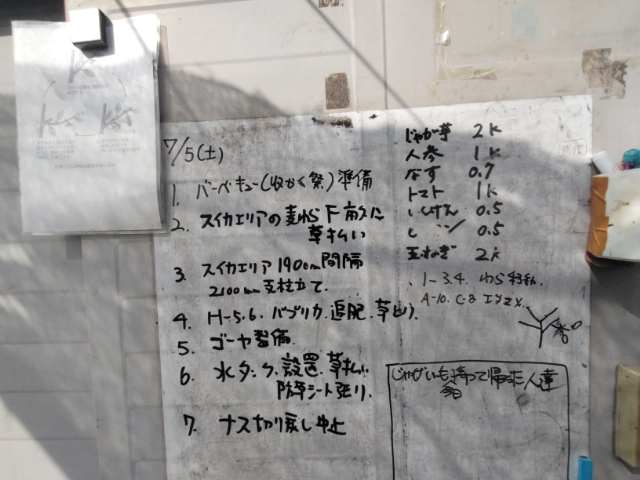 7/5(土)
1. バーベキュー(収かく祭)準備
2. スイカエリアの麦わら下敷に
草払い
3. スイカエリア 1900mm間隔
2100mm支柱立て.
4. H-5.6. パプリカ. 追肥.
5. ゴーヤ
6. 水タンク. 設置. 草払い
防草シート張り.
7. ナス切り戻し中止
じゃが芋 2K
人参 1K
なす 0.7
トマト 1K
いんげん 0.5
0.5
玉ねぎ 2K
1-3.4. わら
A-10. C-8
じゃがいも持って帰った人達